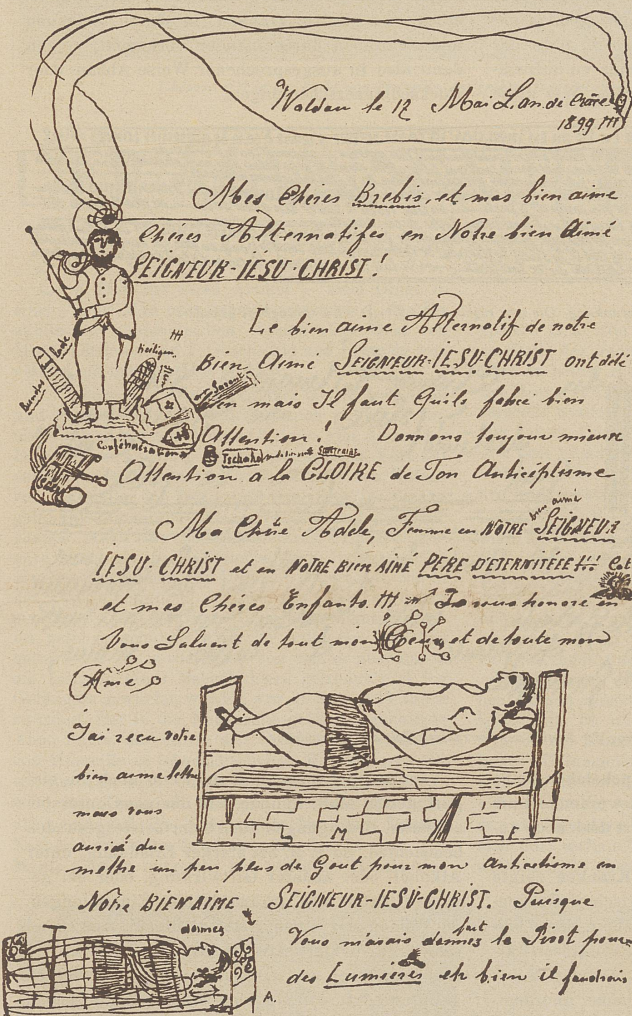 Waldau le 12 Mai L'an de
1899
Mes Chères Brebis, et mas bien aime
Chères Alternatifes en Notre bien Aimé
SEIGNEUR-IESU-CHRIST!
Le bien aime Alternatif de notre
Bien Aimé SEIGNEUR-IESU-CHRIST ont été
mais Il faut Quils bien
Attention! Donnons toujour mieux
Tschako
Attention a la GLOIRE de Ton Anticiptisme
bien aimé
Ma Chère Adele, Femme en NOTRE SEIGNEUR
IESU-CHRIST et en NOTRE BIEN AIMÉ PÉRE D'ETERNITÉE!!! Cet
et mes Chères Enfants. Je vous honore en
Vous Saluent de tout mon Coeur et de toute mon
Ame
J'ai recu votre
bien aime lettre
mais vous
auriá due
M E
mettre un peu plus de Gout pour mon Anticetisme en
Notre BIEN AIME SEIGNEUR-IESU-CHRIST. Puisque
dormes
Vous m'avais fait dormes le Pivot pour
des Lumières eh bien il faudrais
A.